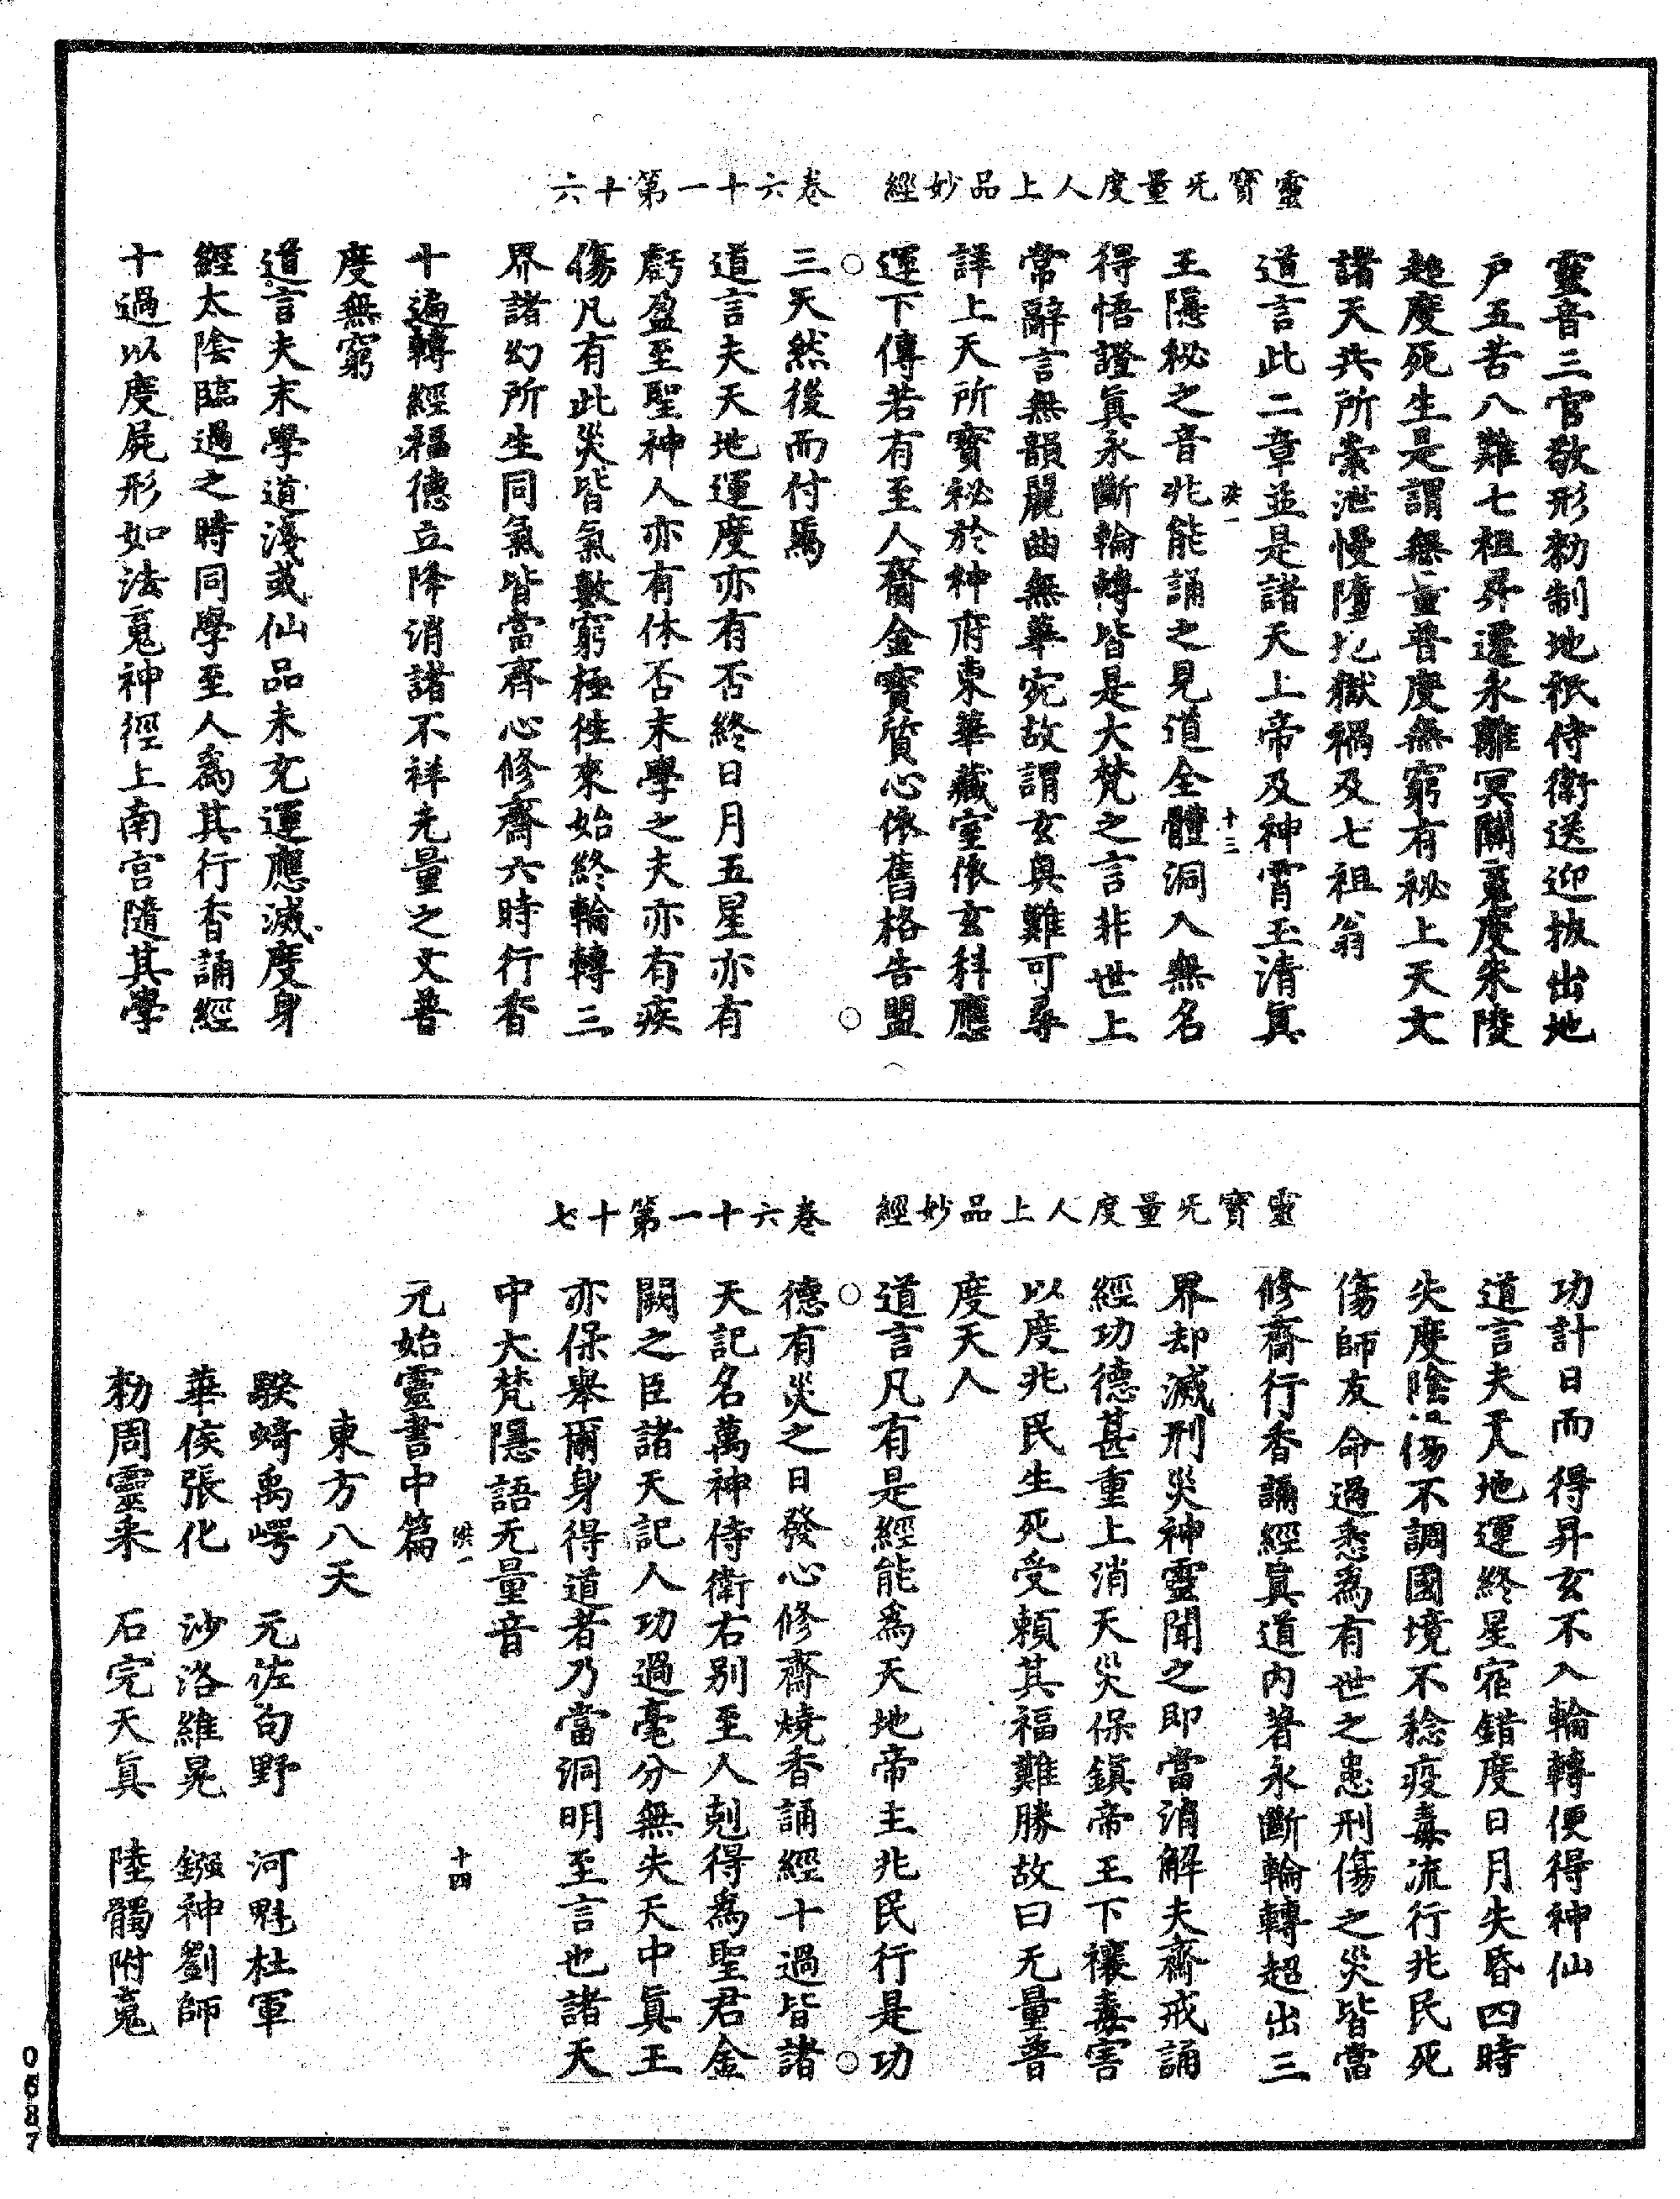 靈寶无量度人上品妙經　卷六十一第十六
靈音三官敬形勑制地祇侍衛送迎拔出地
户五苦八難七祖昇遷永離冥關䰟度朱陵
超度死生是謂無量普度無窮有秘上天文
諸天共所崇泄慢墮地獄禍及七祖翁
道言此二章並是諸天上帝及神霄玉清眞
洪一　十三
王隱秘之音兆能誦之見道全體洞入無名
得悟證眞永斷輪轉皆是大梵之言非世上
常辭言無韻麗曲無華宛故謂玄奥難可尋
詳上天所寶祕於神府東華藏室依玄科應
運下傳若有至人齎金寶質心依舊格告盟
三天然後而付焉
道言夫天地運度亦有否終日月五星亦有
虧盈至聖神人亦有休否末學之夫亦有疾
傷凡有此災皆氣數窮極徃來始終輪轉三
界諸幻所生同氣皆當齊心修齋六時行香
十遍轉經福德立降消諸不祥无量之文普
度無窮
道言夫末學道淺或仙品未充運應滅度身
經太陰臨過之時同學至人爲其行香誦經
十過以度屍形如法䰟神徑上南宫隨其學
靈寶无量度人上品妙經　卷六十一第十七
功計日而得昇玄不入輪轉便得神仙
道言夫天地運終星宿錯度日月失昏四時
失度陰陽不調國境不稔疫毒流行兆民死
傷師友命過悉爲有世之患刑傷之災皆當
修齋行香誦經眞道内著永斷輪轉超出三
界却滅刑災神靈聞之即當消解夫齋戒誦
經功德甚重上消天災保鎮帝王下禳毒害
以度兆民生死受頼其福難勝故曰无量普
度天人
道言凡有是經能爲天地帝主兆民行是功
德有災之日發心修齋燒香誦經十過皆諸
天記名萬神侍衛右别至人剋得爲聖君金
闕之臣諸天記人功過毫分無失天中眞王
亦保舉爾身得道者乃當洞明至言也諸天
中大梵隱語无量音
洪一　十四
元始靈書中篇
東方八天
騤蜻禹㟧　元佐句野　河魁杜軍
華侯張化　沙洛維晃　鏹神劉師
勑周靈来　石完天眞　陸髑附䰟
0687